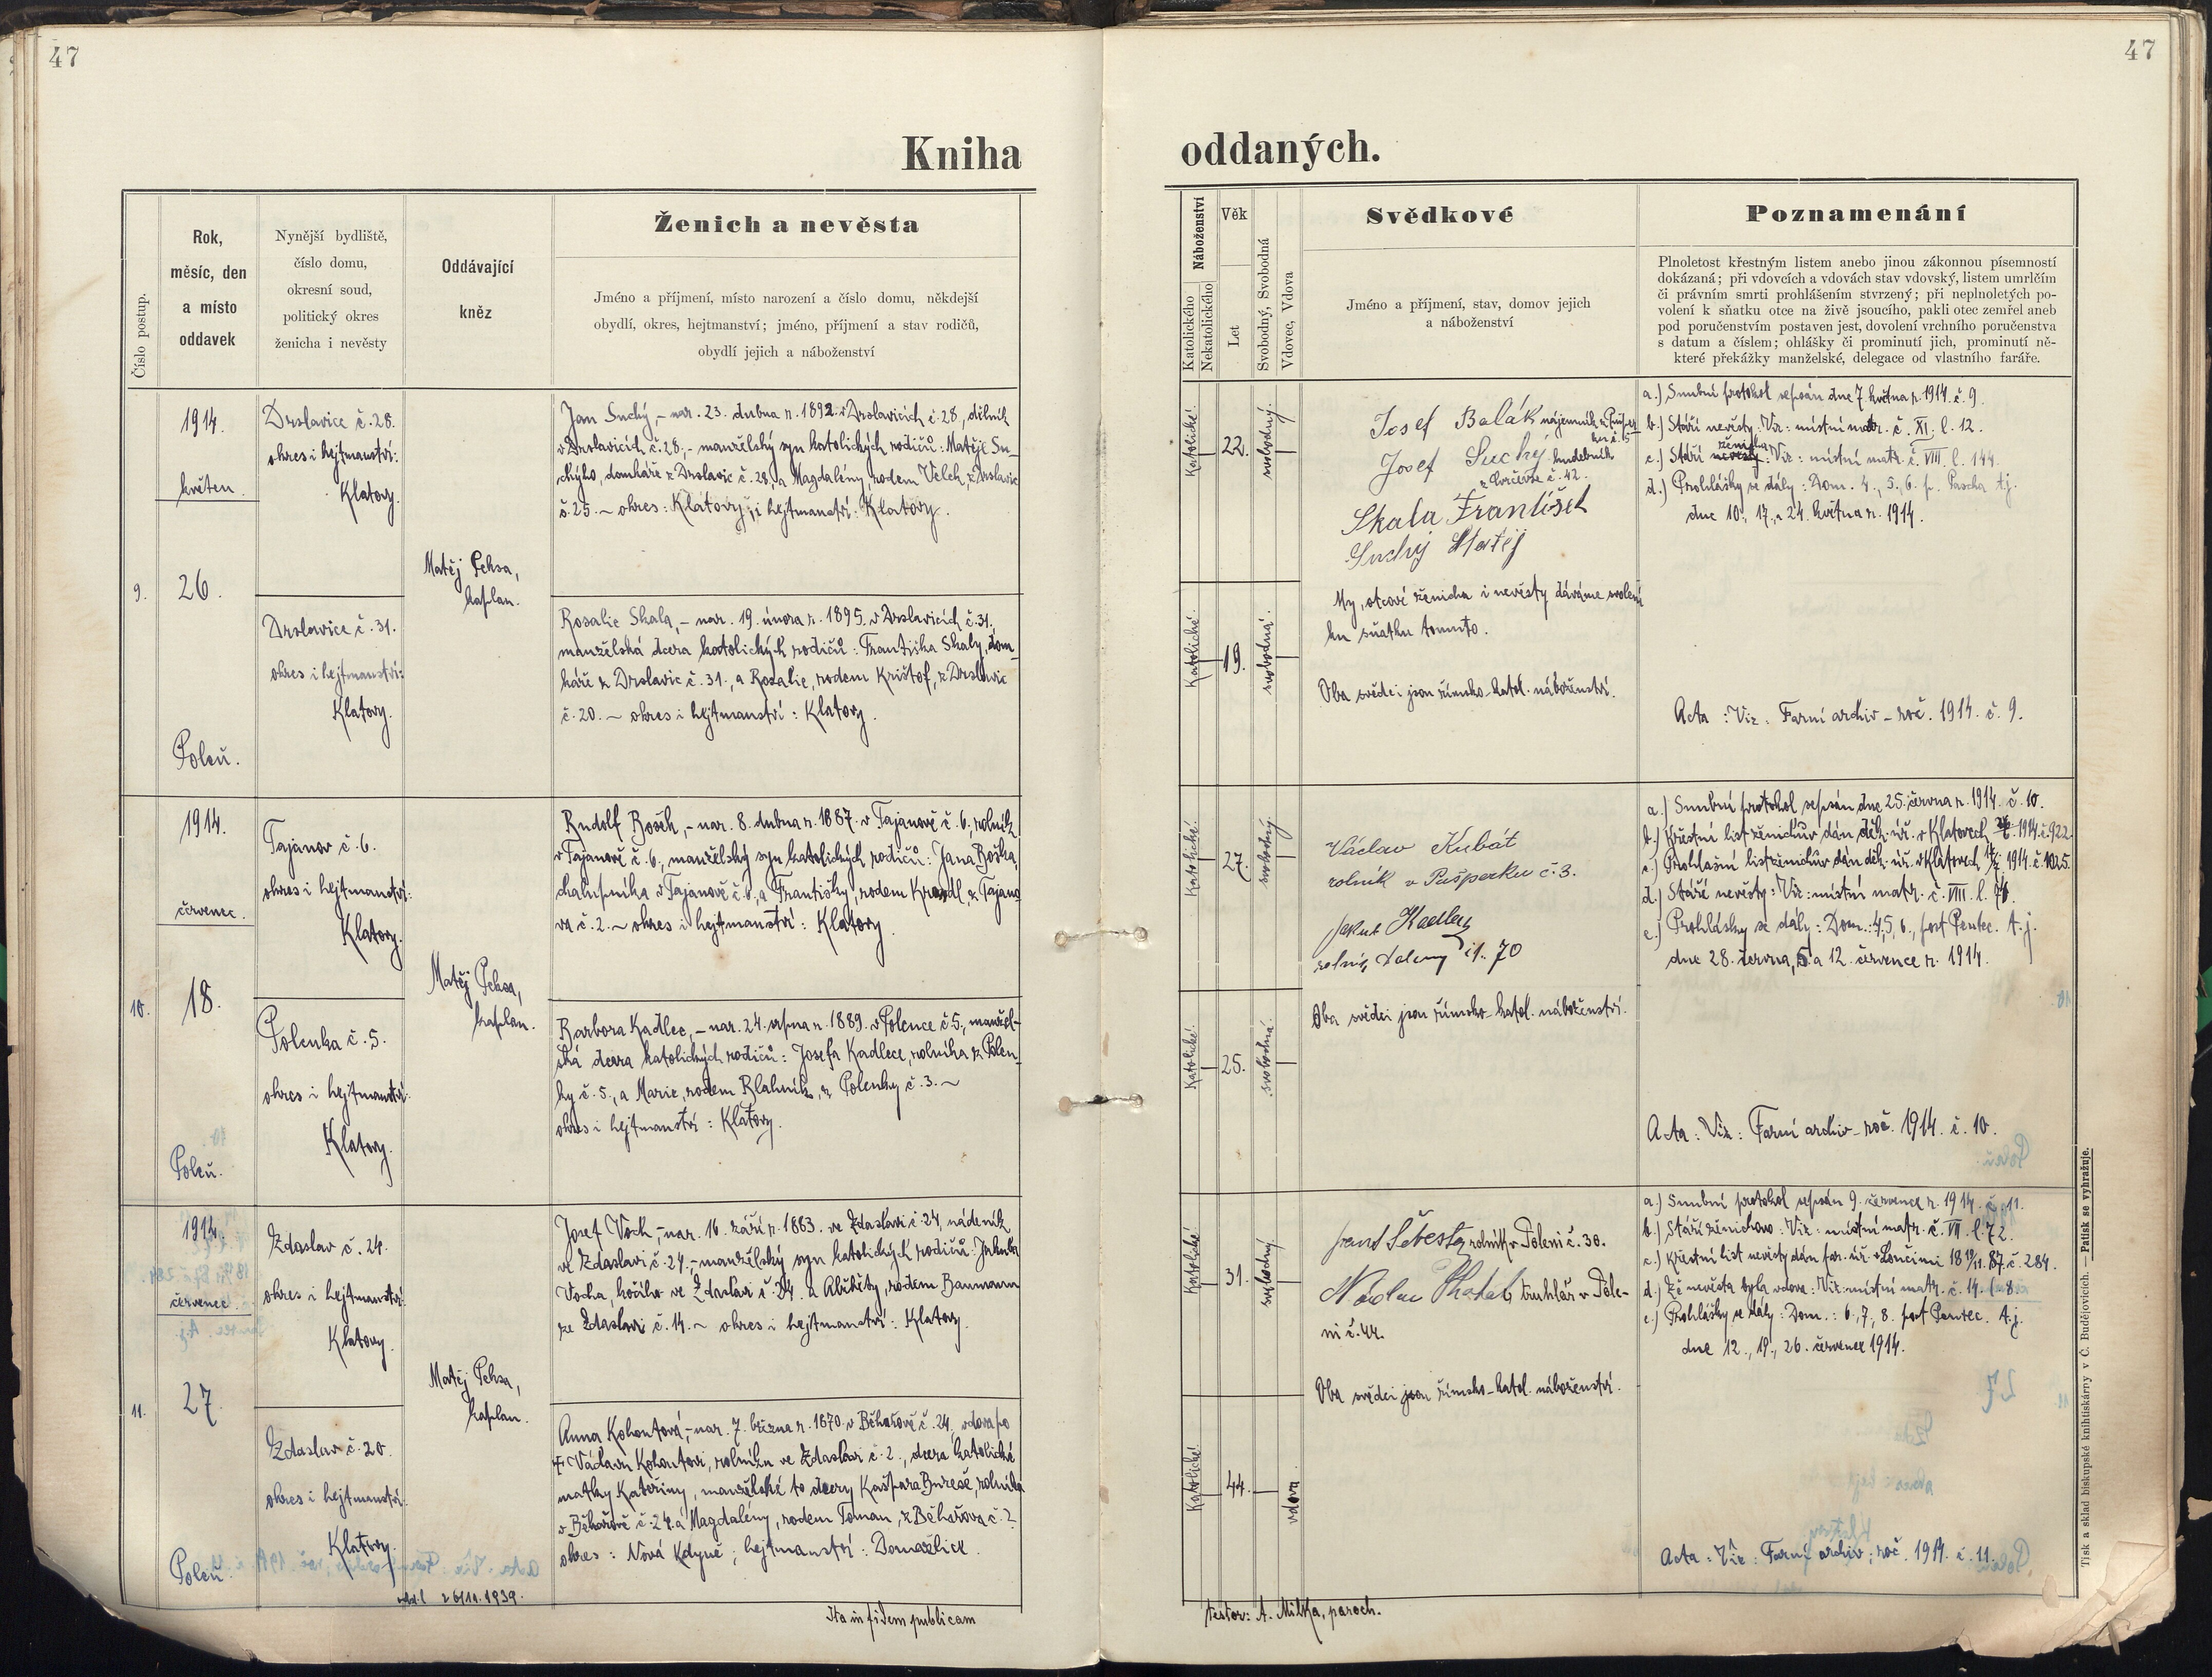 47
47
Kniha
oddaných.
Číslo postup.
Rok,
měsíc, den
a místo
oddavek
Nynější bydliště,
číslo domu,
okresní soud,
politický okres
ženicha i nevěsty
Oddávající
kněz
Ženich a nevěsta
Jméno a příjmení, místo narození a číslo domu, někdejší
obydlí, okres, hejtmanství; jméno, příjmení a stav rodičů,
obydlí jejich a náboženství
Náboženství
Katolického
Nekatolického
Věk
Let
Svobodný, Svobodná
Vdovec, Vdova
Svědkové
Jméno a příjmení, stav, domov jejich
a náboženství
Poznamenání
Plnoletost křestným listem anebo jinou zákonnou písemností
dokázaná; při vdovcích a vdovách stav vdovský, listem umrlčím
či právním smrti prohlášením stvrzený; při neplnoletých po-
volení k sňatku otce na živě jsoucího, pakli otec zemřel aneb
pod poručenstvím postaven jest, dovolení vrchního poručenstva
s datum a číslem; ohlášky či prominutí jich, prominutí ně-
které překážky manželské, delegace od vlastního faráře.
9.
1914.
květen.
26.
Poleň.
Drslavice č. 28.
okres i hejtmanství:
Klatovy.
Drslavice č. 31.
okres i hejtmanství:
Klatovy.
Matěj Pehsa,
kaplan.
Jan Suchý, – nar. 23. dubna r. 1892. v Drslavicích č. 28, dělník
v Drslavicích č. 28, – manželský syn katolických rodičů: Matěje Su-
chého, domkáře z Drslavic č. 28, a Magdalény, rodem Velek, z Drslavic
č. 25. ~ okres: Klatovy, i hejtmanství: Klatovy.
Rosalie Skala, – nar. 19. února r. 1895. v Drslavicích č. 31.,
manželská dcera katolických rodičů: Františka Skaly, dom-
káře z Drslavic č. 31., a Rosalie, rodem Krištof, z Drslavic
č. 20. ~ okres i hejtmanství: Klatovy.
Katolické.
22.
svobodný.
Katolické.
19.
svobodná.
Josef Balák nájemník z
Josef Suchý hudebník
č. 42.
Skala František
Suchý Matěj
My, otcové ženicha i nevěsty dáváme svolení
ku sňatku tomuto.
Oba svědci jsou římsko-katol. náboženství.
a.) Snubní protokol sepsán dne 7. května r. 1914. č. 9.
b.) Stáří nevěsty: Viz: místní matr. č. XI. l. 12.
c.) Stáří nevěsty ženicha: Viz: místní matr. č. VIII. l. 144.
d.) Prohlášky se dály: Dom. 4., 5., 6. p. Pascha t.j.
dne 10., 17., a 24. května r. 1914.
Acta: Viz: Farní archiv – roč. 1914. č. 9.
10.
1914.
červenec.
18.
Poleň.
Tajanov č. 6.
okres i hejtmanství:
Klatovy.
Polenka č. 5.
okres i hejtmanství:
Klatovy.
Matěj Pehsa,
kaplan.
Rudolf Bošek, – nar. 8. dubna r. 1887. v Tajanově č. 6., rolník
v Tajanově č. 6., manželský syn katolických rodičů: Jana Boška,
chalupníka v Tajanově č. 6., a Františky, rodem Krandl, z Tajano-
va č. 2. ~ okres i hejtmanství: Klatovy.
Barbora Kadlec, – nar. 24. srpna r. 1889. v Polence č. 5., manžel-
ská dcera katolických rodičů: Josefa Kadlece, rolníka z Polen-
ky č. 5., a Marie, rodem Blahník, z Polenky č. 3. ~
okres i hejtmanství: Klatovy.
Katolické.
27.
svobodný.
Katolické.
25.
svobodná.
Václav Kubát
rolník v Pušperku č. 3.
Jakub Kadlec
rolník čí. 70
Oba svědci jsou římsko-katol. náboženství.
a.) Snubní protokol sepsán dne 25. června r. 1914. č. 10.
b.) Křestní list ženichův dán děk. úř. v Klatovech 1914. č. 922.
c.) Prohlašní list ženichův dán děk. úř. v Klatovech 1914. č. 1025.
d.) Stáří nevěsty: Viz: místní matr. č. VIII. l. 76.
e.) Prohlášky se dály: Dom.: 4, 5, 6., post Pentec. t.j.
dne 28. června, 5. a 12. července r. 1914.
Acta: Viz: Farní archiv – roč. 1914. č. 10.
11.
1914.
červenec.
27.
Poleň.
Zdaslav č. 24.
okres i hejtmanství:
Klatovy.
Zdaslav č. 20.
okres i hejtmanství:
Klatovy.
Matěj Pehsa,
kaplan.
Josef Voch, – nar. 16. září r. 1883. ve Zdaslavi č. 24, nádeník
ve Zdaslavi č. 24, – manželský syn katolických rodičů: Jakuba
Vocha, kočího ve Zdaslavi č. 24. a Alžběty, rodem Baumann
ze Zdaslavi č. 14. ~ okres i hejtmanství: Klatovy.
Anna Kohoutová, – nar. 7. března r. 1870. v Běhařově č. 24, vdova po
† Václavu Kohoutovi, rolníku ve Zdaslavi č. 2., dcera katolické
matky Kateřiny, manželské to dcery Kašpara Bureše, rolníka
v Běhařově č. 24. a Magdalény, rodem Toman, z Běhařova č. 2.
okres: Nová Kdyně; hejtmanství: Domažlice.
26/10. 1939.
Katolické.
31.
svobodný.
Katolické.
44.
vdova.
Šebesta rolník v Poleni č. 30.
truhlář v Pole-
ni č. 44.
Oba svědci jsou římsko-katol. náboženství.
a.) Snubní protokol sepsán 9. července r. 1914. č. 11.
b.) Stáří ženichovo: Viz: místní matr. č. VII. l. 72.
c.) Křestní list nevěsty dán far. úř. v Loučimi 18 19/11. 87. č. 284.
d.) Že nevěsta byla vdova: Viz: místní matr. č. 14. l. 8.
e.) Prohlášky se dály: Dom.: 6., 7., 8. post Pentec. t.j.
dne 12., 19., 26. července 1914.
Acta: Viz: Farní archiv; roč. 1914. č. 11.
Ita in fidem publicam
testor: A. Milka, paroch.
Tisk a sklad biskupské knihtiskárny v Č. Budějovicích. — Patisk se vyhražuje.